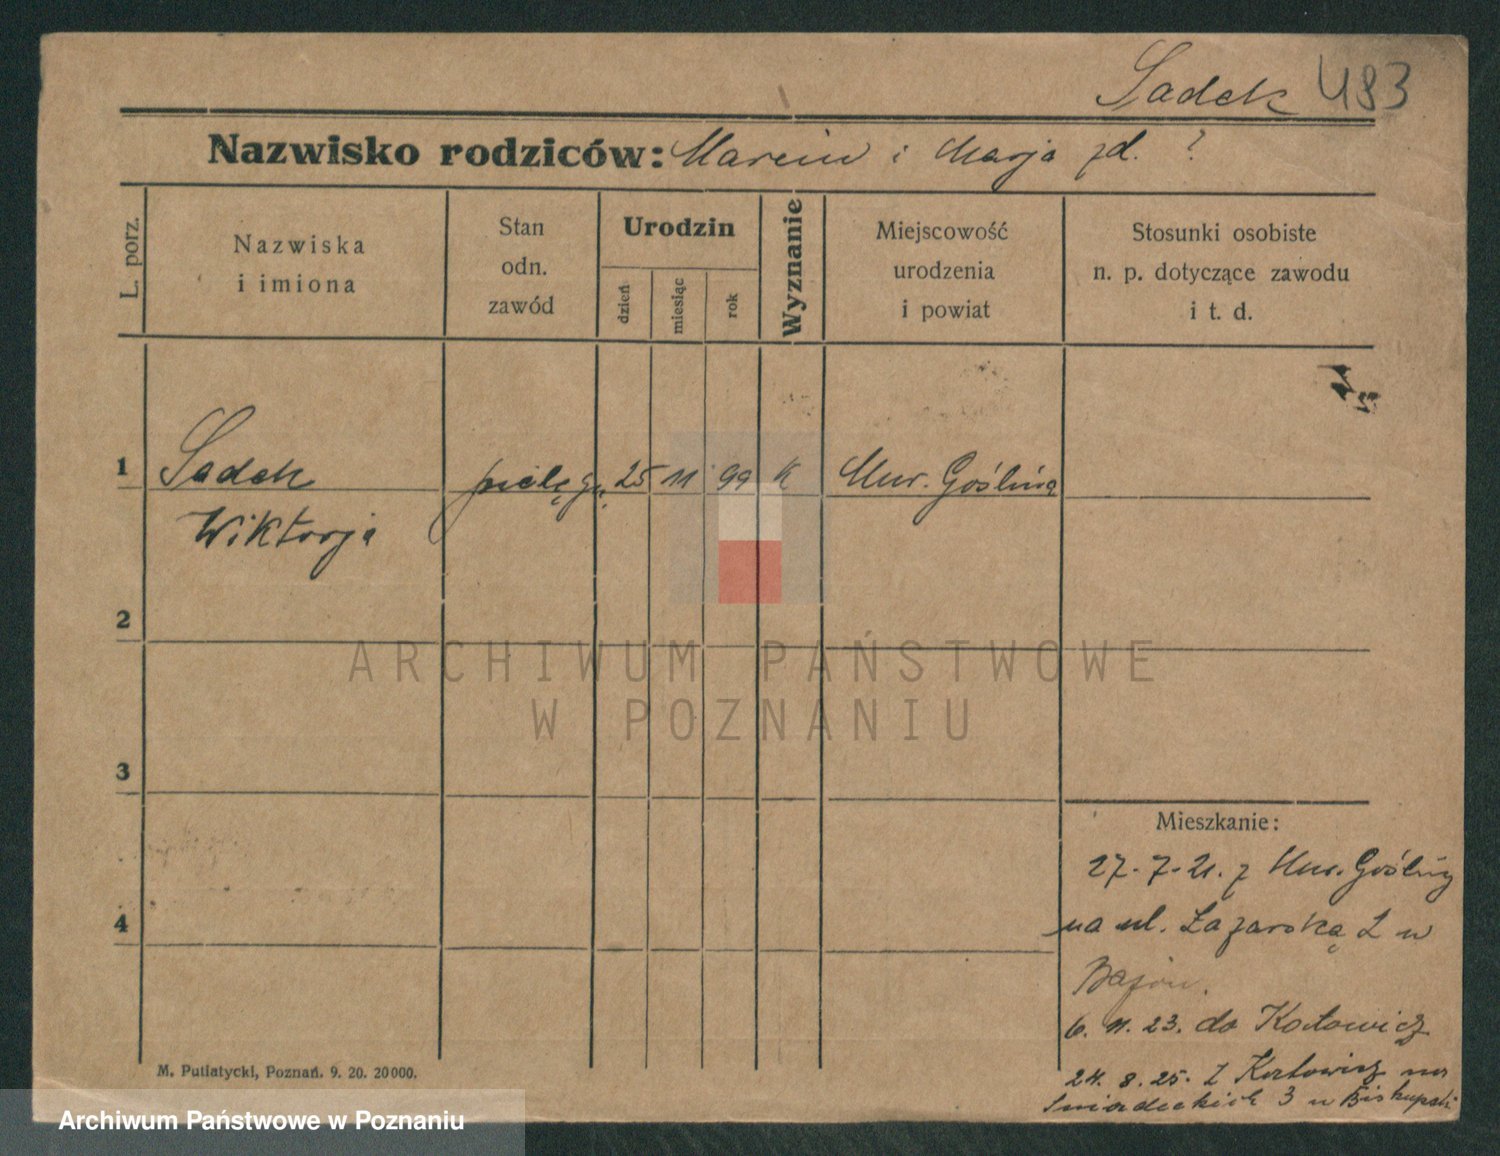 Sadek 483
Nazwisko rodziców: Marcin i Marja zd. ?
L. porz.
Nazwiska
i imiona
Stan
odn.
zawód
Urodzin
dzień
miesiąc
rok
Wyznanie
Miejscowość
urodzenia
i powiat
Stosunki osobiste
n. p. dotyczące zawodu
i t. d.
1 Sadek pielęgn. 25 11 99 K Mur. Goślina
Wiktorja
2
3
4
ARCHIWUM PAŃSTWOWE
W POZNANIU
Mieszkanie:
27-7-21. z Mur. Gośliny
na ul. Łazarską 2 w
6. 11. 23. do Katowicz
24. 8. 25. z Katowicz na
Śniadeckich 3 u Biskupski
M. Putiatycki, Poznań. 9. 20. 20000.
Archiwum Państwowe w Poznaniu